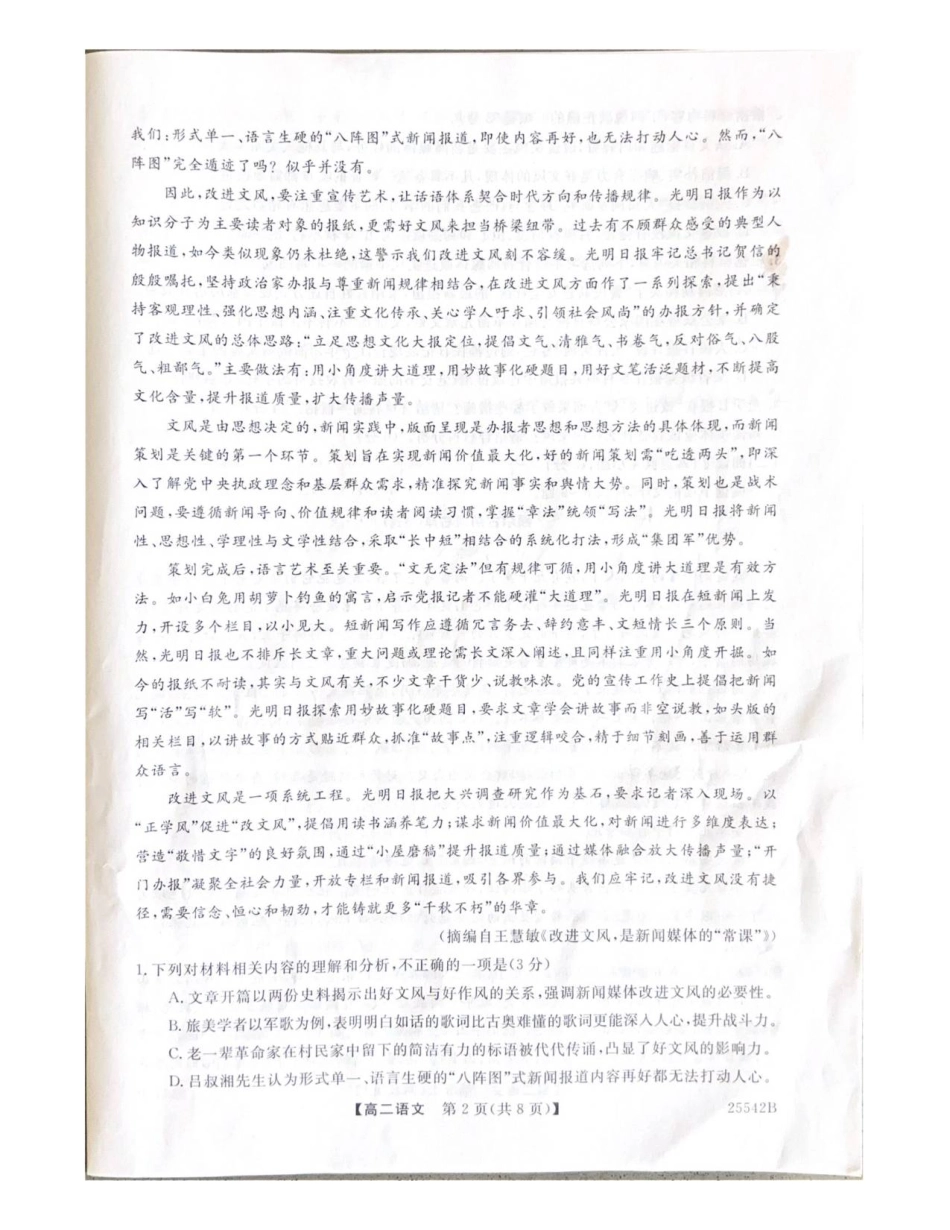 我们:形式单一、语言生硬的“八阵图”式新闻报道,即使内容再好,也无法打动人心。然而,“八
阵图”完全遁迹了吗?似乎并没有。
因此,改进文风,要注重宣传艺术,让话语体系契合时代方向和传播规律。光明日报作为以
知识分子为主要读者对象的报纸,更需好文风来担当桥梁纽带。过去有不顾群众感受的典型人
物报道,如今类似现象仍未杜绝,这警示我们改进文风刻不容缓。光明日报牢记总书记贺信的
殷殷嘱托,坚持政治家办报与尊重新闻规律相结合,在改进文风方面作了一系列探索,提出“秉
持客观理性、强化思想内涵、注重文化传承、关心学人吁求、引领社会风尚”的办报方针,并确定
了改进文风的总体思路:“立足思想文化大报定位,提倡文气、清雅气、书卷气,反对俗气、八股
气、粗鄙气。”主要做法有:用小角度讲大道理,用妙故事化硬题目,用好文笔活泛题材,不断提高
文化含量,提升报道质量,扩大传播声量。
文风是由思想决定的,新闻实践中,版面呈现是办报者思想和思想方法的具体体现,而新闻
策划是关键的第一个环节。策划旨在实现新闻价值最大化,好的新闻策划需“吃透两头”,即深
入了解党中央执政理念和基层群众需求,精准探究新闻事实和舆情大势。同时,策划也是战术
问题,要遵循新闻导向、价值规律和读者阅读习惯,掌握“章法”统领“写法”。光明日报将新闻
性、思想性、学理性与文学性结合,采取“长中短”相结合的系统化打法,形成“集团军”优势。
策划完成后,语言艺术至关重要。“文无定法”但有规律可循,用小角度讲大道理是有效方
法。如小白兔用胡萝卜钓鱼的寓言,启示党报记者不能硬灌“大道理”。光明日报在短新闻上发
力,开设多个栏目,以小见大。短新闻写作应遵循冗言务去、辞约意丰、文短情长三个原则。当
然,光明日报也不排斥长文章,重大问题或理论需长文深入阐述,且同样注重用小角度开掘。如
今的报纸不耐读,其实与文风有关,不少文章干货少、说教味浓。党的宣传工作史上提倡把新闻
写“活”写“软”。光明日报探索用妙故事化硬题目,要求文章学会讲故事而非空说教,如头版的
相关栏目,以讲故事的方式贴近群众,抓准“故事点”,注重逻辑咬合,精于细节刻画,善于运用群
众语言。
改进文风是一项系统工程。光明日报把大兴调查研究作为基石,要求记者深入现场。以
“正学风”促进“改文风”,提倡用读书涵养笔力;谋求新闻价值最大化,对新闻进行多维度表达;
营造“敬惜文字”的良好氛围,通过“小屋磨稿”提升报道质量;通过媒体融合放大传播声量;“开
门办报”凝聚全社会力量,开放专栏和新闻报道,吸引各界参与。我们应牢记,改进文风没有捷
径,需要信念、恒心和韧劲,才能铸就更多“千秋不朽”的华章。
(摘编自王慧敏《改进文风,是新闻媒体的“常课”》)
1.下列对材料相关内容的理解和分析,不正确的一项是(3分)
A.文章开篇以两份史料揭示出好文风与好作风的关系,强调新闻媒体改进文风的必要性。
B.旅美学者以军歌为例,表明明白如话的歌词比古奥难懂的歌词更能深入人心,提升战斗力。
C.老一辈革命家在村民家中留下的简洁有力的标语被代代传诵,凸显了好文风的影响力。
D.吕叔湘先生认为形式单一、语言生硬的“八阵图”式新闻报道内容再好都无法打动人心。
【高二语文 第2页(共8页)】
25542B